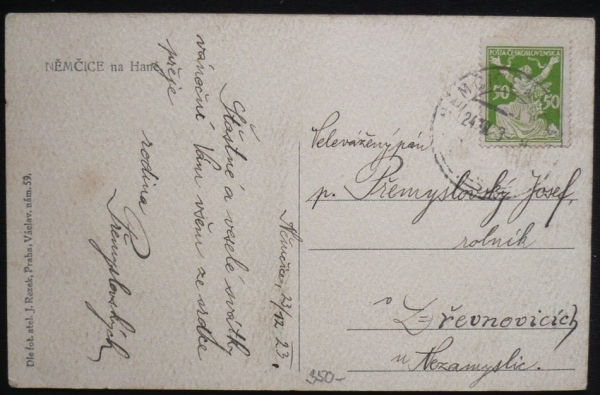 NĚMČICE na Hané
Šťastné a veselé svátky
vánoční Vám všem ze srdce
přeje
rodina
Přemyslovských
Němčice, 23/12 23.
Dle fot. atel. J. Resek, Praha, Václav. nám. 59.
POŠTA ČESKOSLOVENSKA
50 50
Velevážený pán
p. Přemyslovský Josef,
rolník
v
Dřevnovicích
u Nezamyslic.
350-